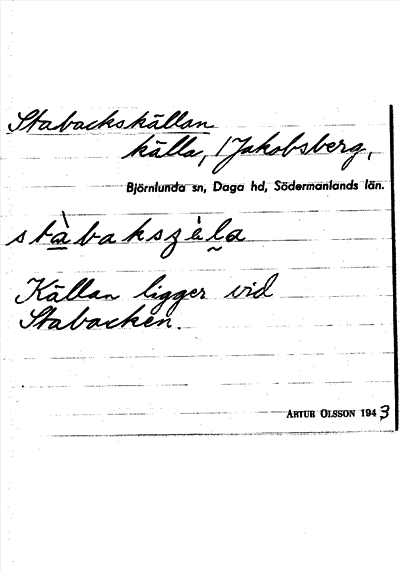 Stabackskällan
källa, / Jakobsberg,
Björnlunda sn, Daga hd, Södermanlands län.
stàbakszὲla
Källan ligger vid
Stabacken.
ARTUR OLSSON 1943